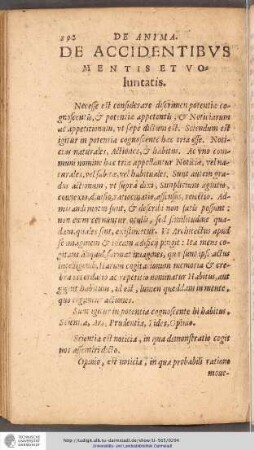 292 DE ANIMA.
DE ACCIDENTIBVS
MENTIS ET VO-
luntatis.
Necesse est considerare discrimen potentiæ co-
gnoscentis, & potentiæ appetentis, & Noticiarum
ac appetitionum, ut sæpe dictum est. Sciendum est
igitur in potentia cognoscente hæc tria esse. Noti-
ciæ naturales, Actiones, & habitus. Ac uno com-
muni nomine hæc tria appellantur Noticiæ, vel na-
turales, vel vel habituales. Sunt autem gra-
dus actionum, ut supra dixi, Simplicium agnitio,
connexio, diuisio, ratiocinatio, assensus, reiectio. Ad-
miranda uerò sunt, & describi non satis possunt:
non enim cernuntur oculis, sed similitudine qua-
dam, quales sint, existimetur. Vt Architectus apud
se imaginem & ideam ædificij pingit: Ita mens cogi-
tans aliquid, format imagines, quæ sunt ipsi actus
intelligendi. Harum cogitationum memoria & cre-
bra recordatio ac repetitio nominatur Habitus, aut
gignit habitum, id est, lumen quoddam in mente,
quo reguntur actiones.
Sunt igitur in potentia cognoscente hi habitus,
Scientia, Ars, Prudentia, Fides, Opinio.
Scientia est noticia, in qua demonstratio cogit
nos assentiri dicto.
Opinio, est noticia, in qua probabili ratione
moue-
http://tudigit.ulb.tu-darmstadt.de/show/
Universitäts- und Landesbibliothek Darmstadt